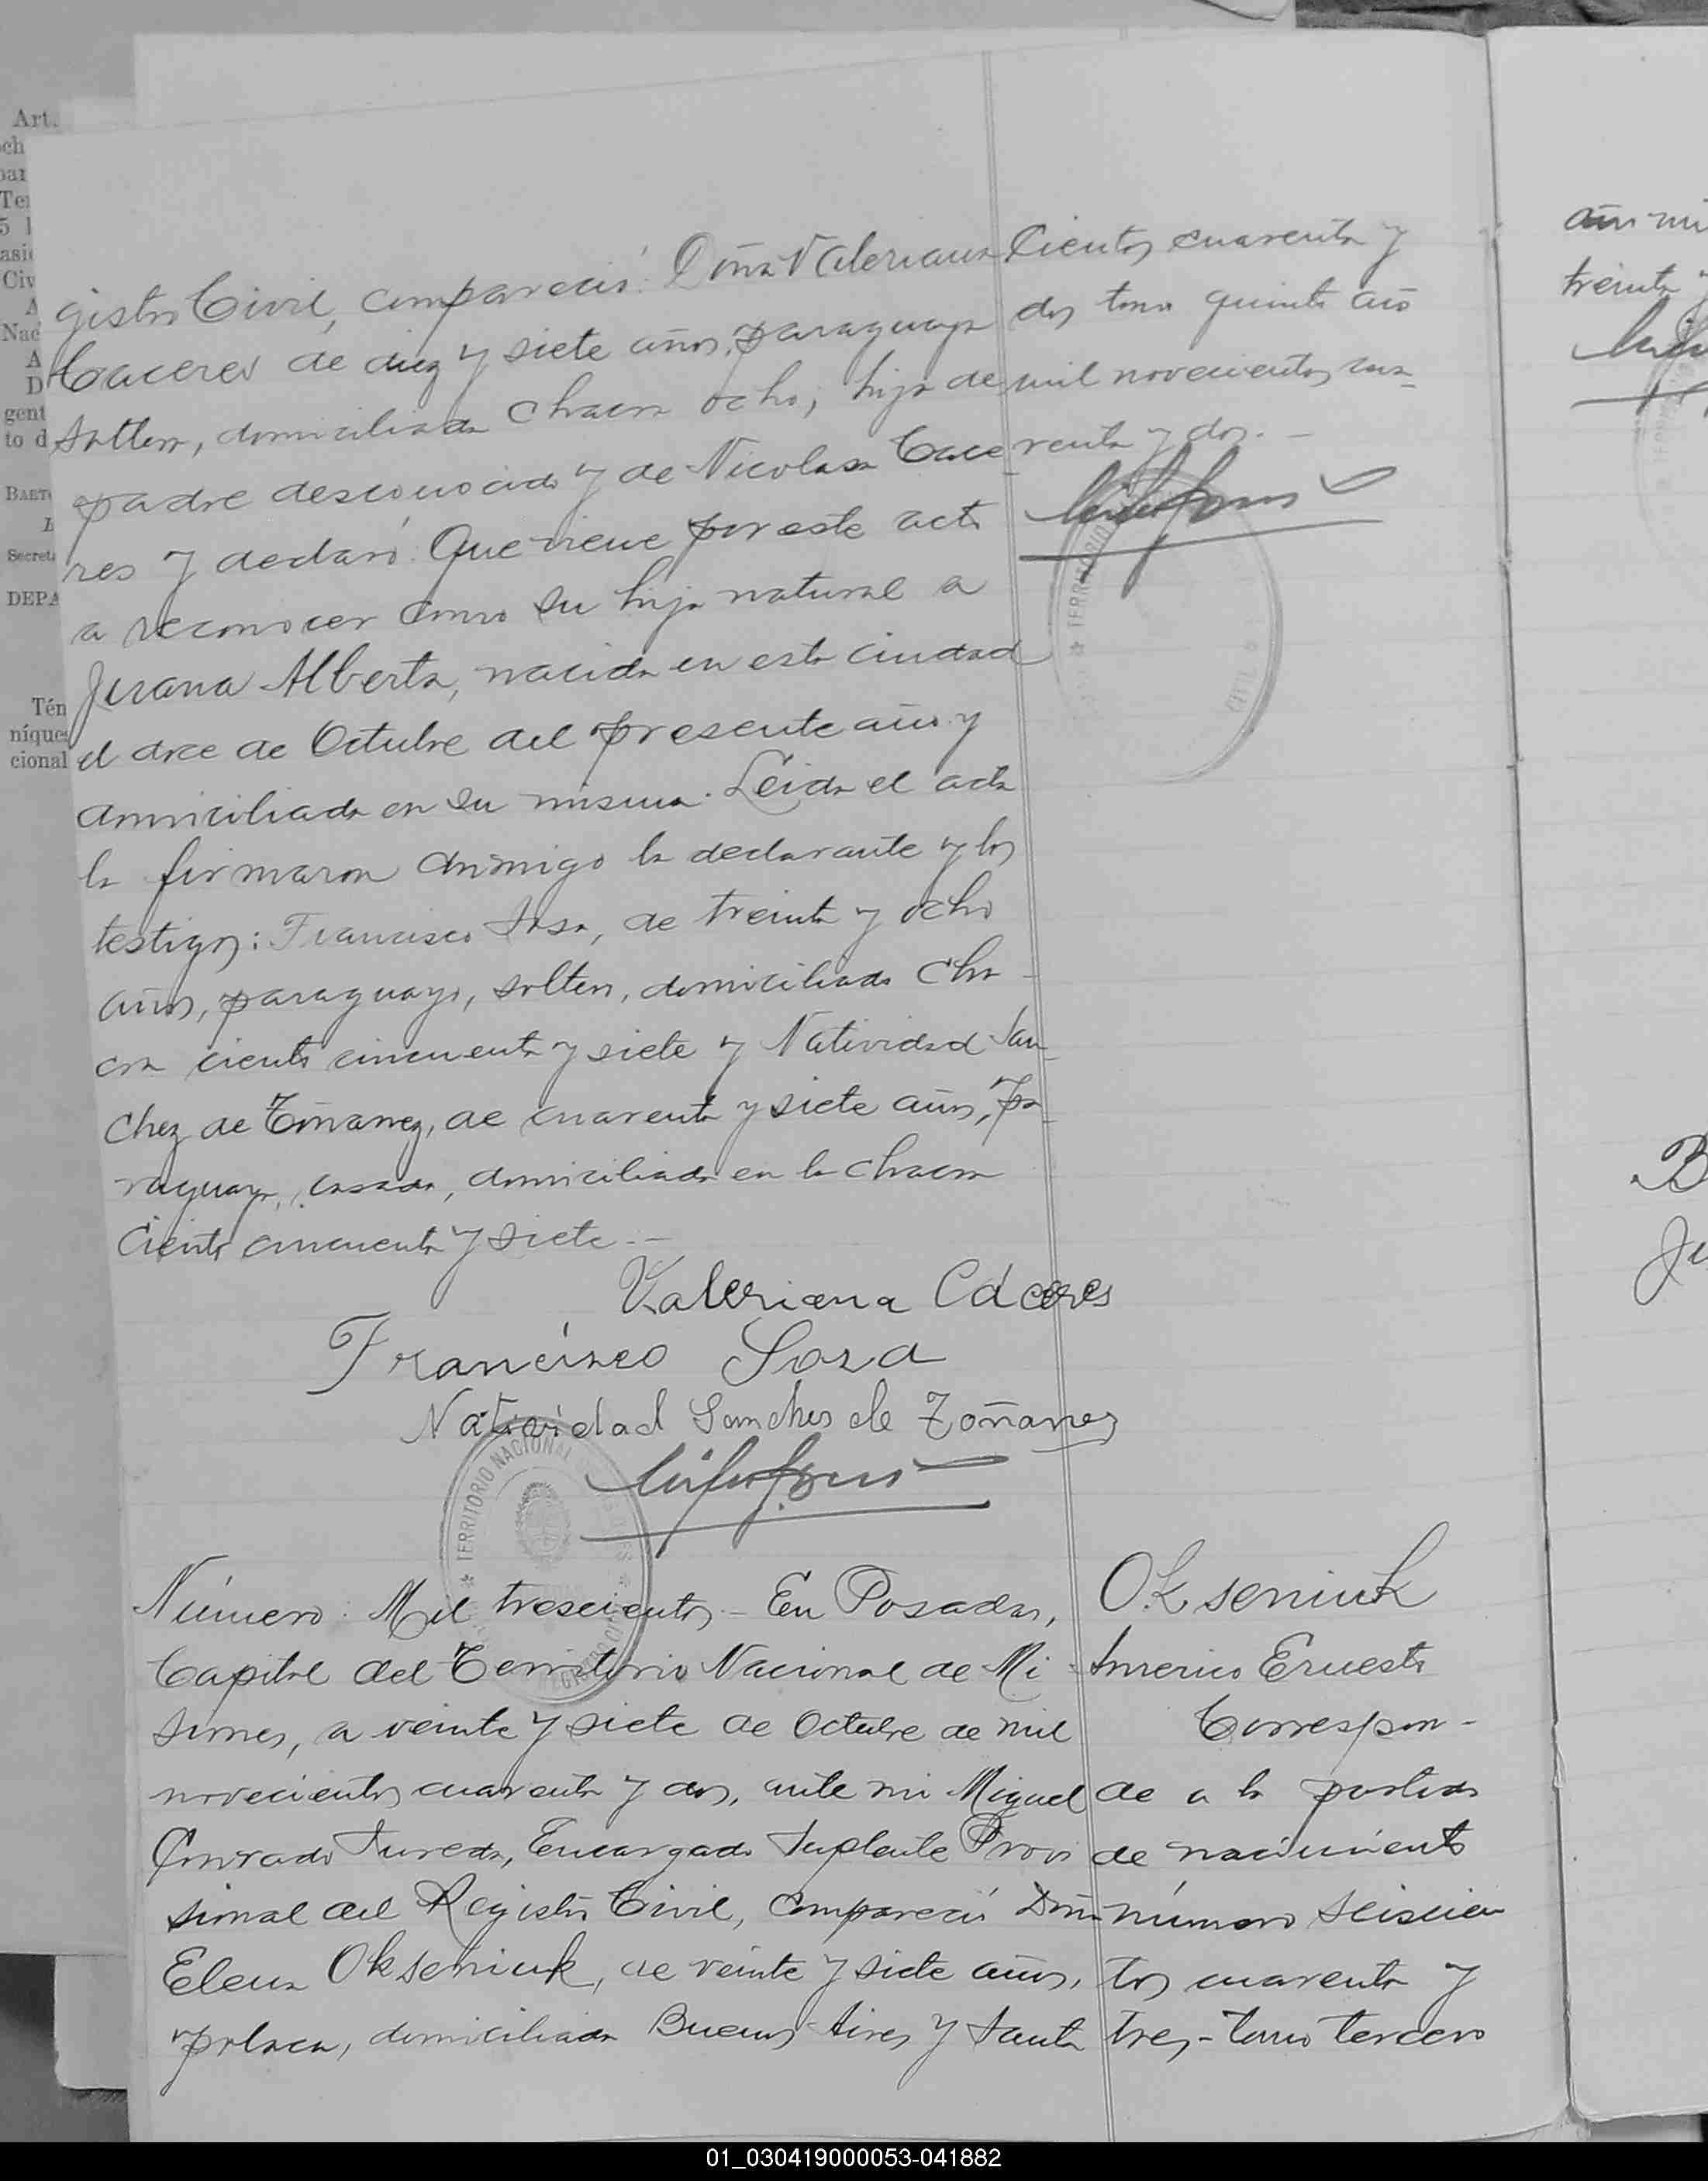 Art.
gistro Civil, compareció: Doña Valeriana
Caceres de diez y siete años, paraguaya
soltera, domiciliada Chacra ocho, hija de
padre desconocido y de Nicolasa Cace
res y declaró: Que viene por este acto
a reconocer como su hija natural a
Juana Alberta, nacida en esta ciudad
el doce de Octubre del presente año y
domiciliada en su misma. Leida el acta
la firmaron conmigo la declarante y los
testigos: Francisco Sosa, de treinta y ocho
años, paraguayo, soltero, domiciliado Cha-
cra ciento cincuenta y siete y Natividad San-
chez de Toñanez, de cuarenta y siete años, pa-
raguaya, casada, domiciliada en la chacra
ciento cincuenta y siete.-
Cientos cuarenta y
dos tomo quinto año
mil novecientos cua-
renta y dos.-
TERRITORIO
Valeriana Cáceres
Francisco Sosa
Natividad Sanches de Toñanez
TERRITORIO NACIONAL
Número: Mil trescientos.- En Posadas,
Capital del Territorio Nacional de Mi-
siones, a veinte y siete de Octubre de mil
novecientos cuarenta y dos, ante mi Miguel
Conrado Sureda, Encargado Suplente Provi
sional del Registro Civil, compareció Doña
Elena Okseniuk, de veinte y siete años,
polaca, domiciliada Buenos Aires y Santa
Okseniuk
Americo Ernesto
Correspon-
de a la partida
de nacimiento
número seiscien
tos cuarenta y
tres-tomo tercero
treinta
01_030419000053-041882